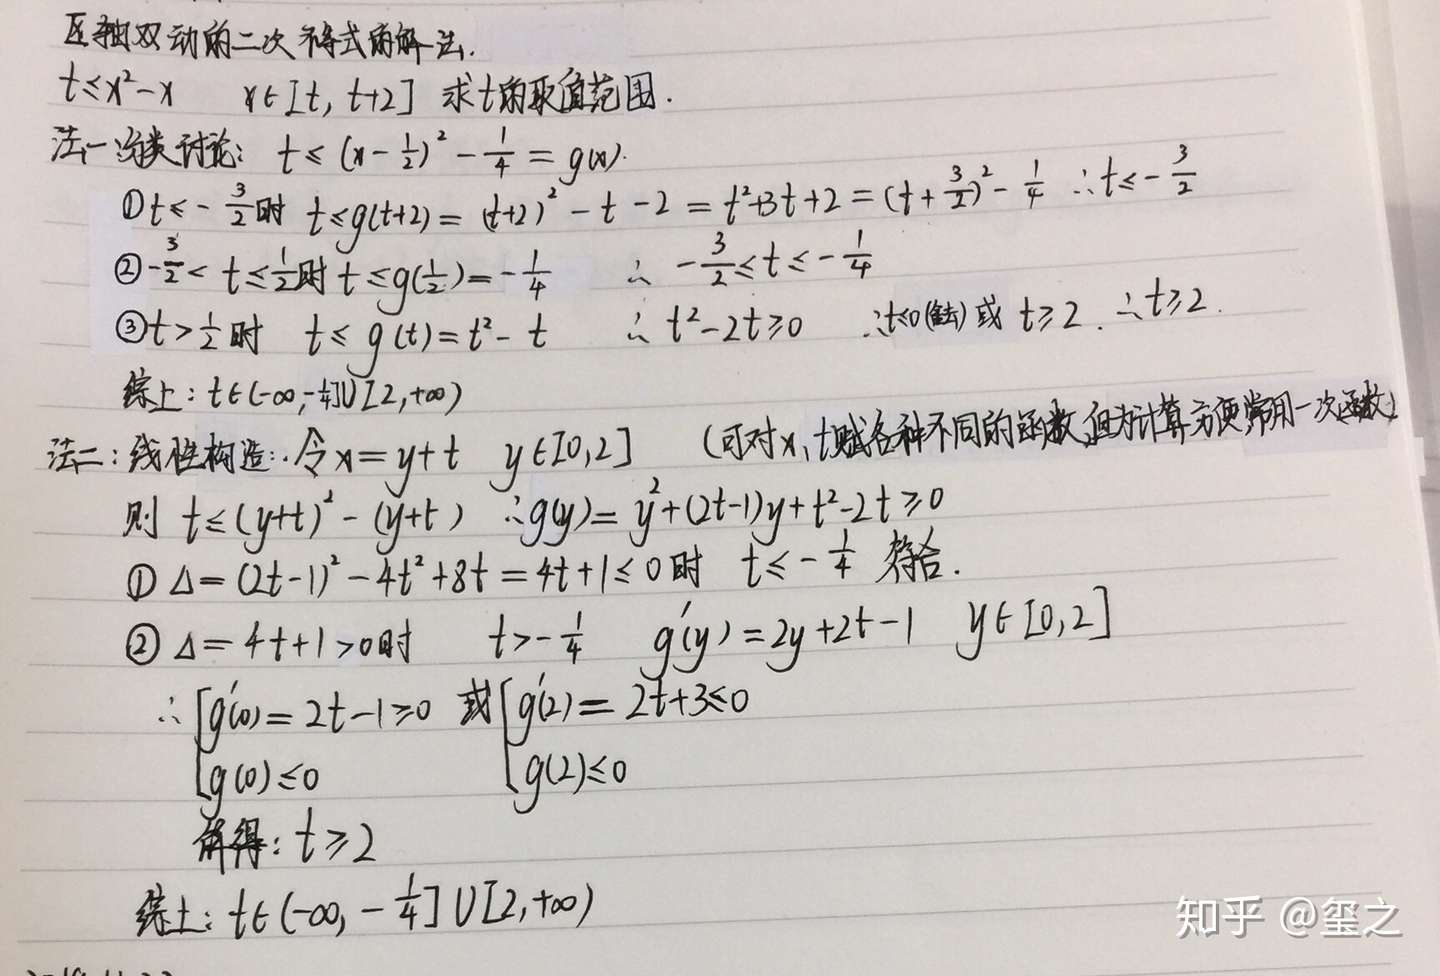 区轴双动的二次不等式的解法.
t≤x²-x x∈[t, t+2] 求t的取值范围.
法一:分类讨论: t≤(x-1/2)²-1/4=g(x).
①t≤-3/2时 t≤g(t+2)=(t+2)²-t-2=t²+3t+2=(t+3/2)²-1/4 ∴t≤-3/2
②-3/2<t≤1/2时 t≤g(1/2)=-1/4 ∴ -3/2≤t≤-1/4
③t>1/2时 t≤g(t)=t²-t ∴t²-2t≥0 ∴t≤0(舍去)或 t≥2. ∴t≥2.
综上: t∈(-∞,-1/4]∪[2,+∞)
法二:线性构造:令x=y+t y∈[0,2] (可对x,t赋各种不同的函数,但为计算方便常用一次函数)
则 t≤(y+t)²-(y+t) ∴g(y)=y²+(2t-1)y+t²-2t≥0
①Δ=(2t-1)²-4t²+8t=4t+1≤0时 t≤-1/4 符合.
②Δ=4t+1>0时 t>-1/4 g'(y)=2y+2t-1 y∈[0,2]
∴[g'(0)=2t-1≥0 或[g'(2)=2t+3≤0
g(0)≤0 g(2)≤0
解得: t≥2
综上: t∈(-∞,-1/4]∪[2,+∞)
知乎 @玺之